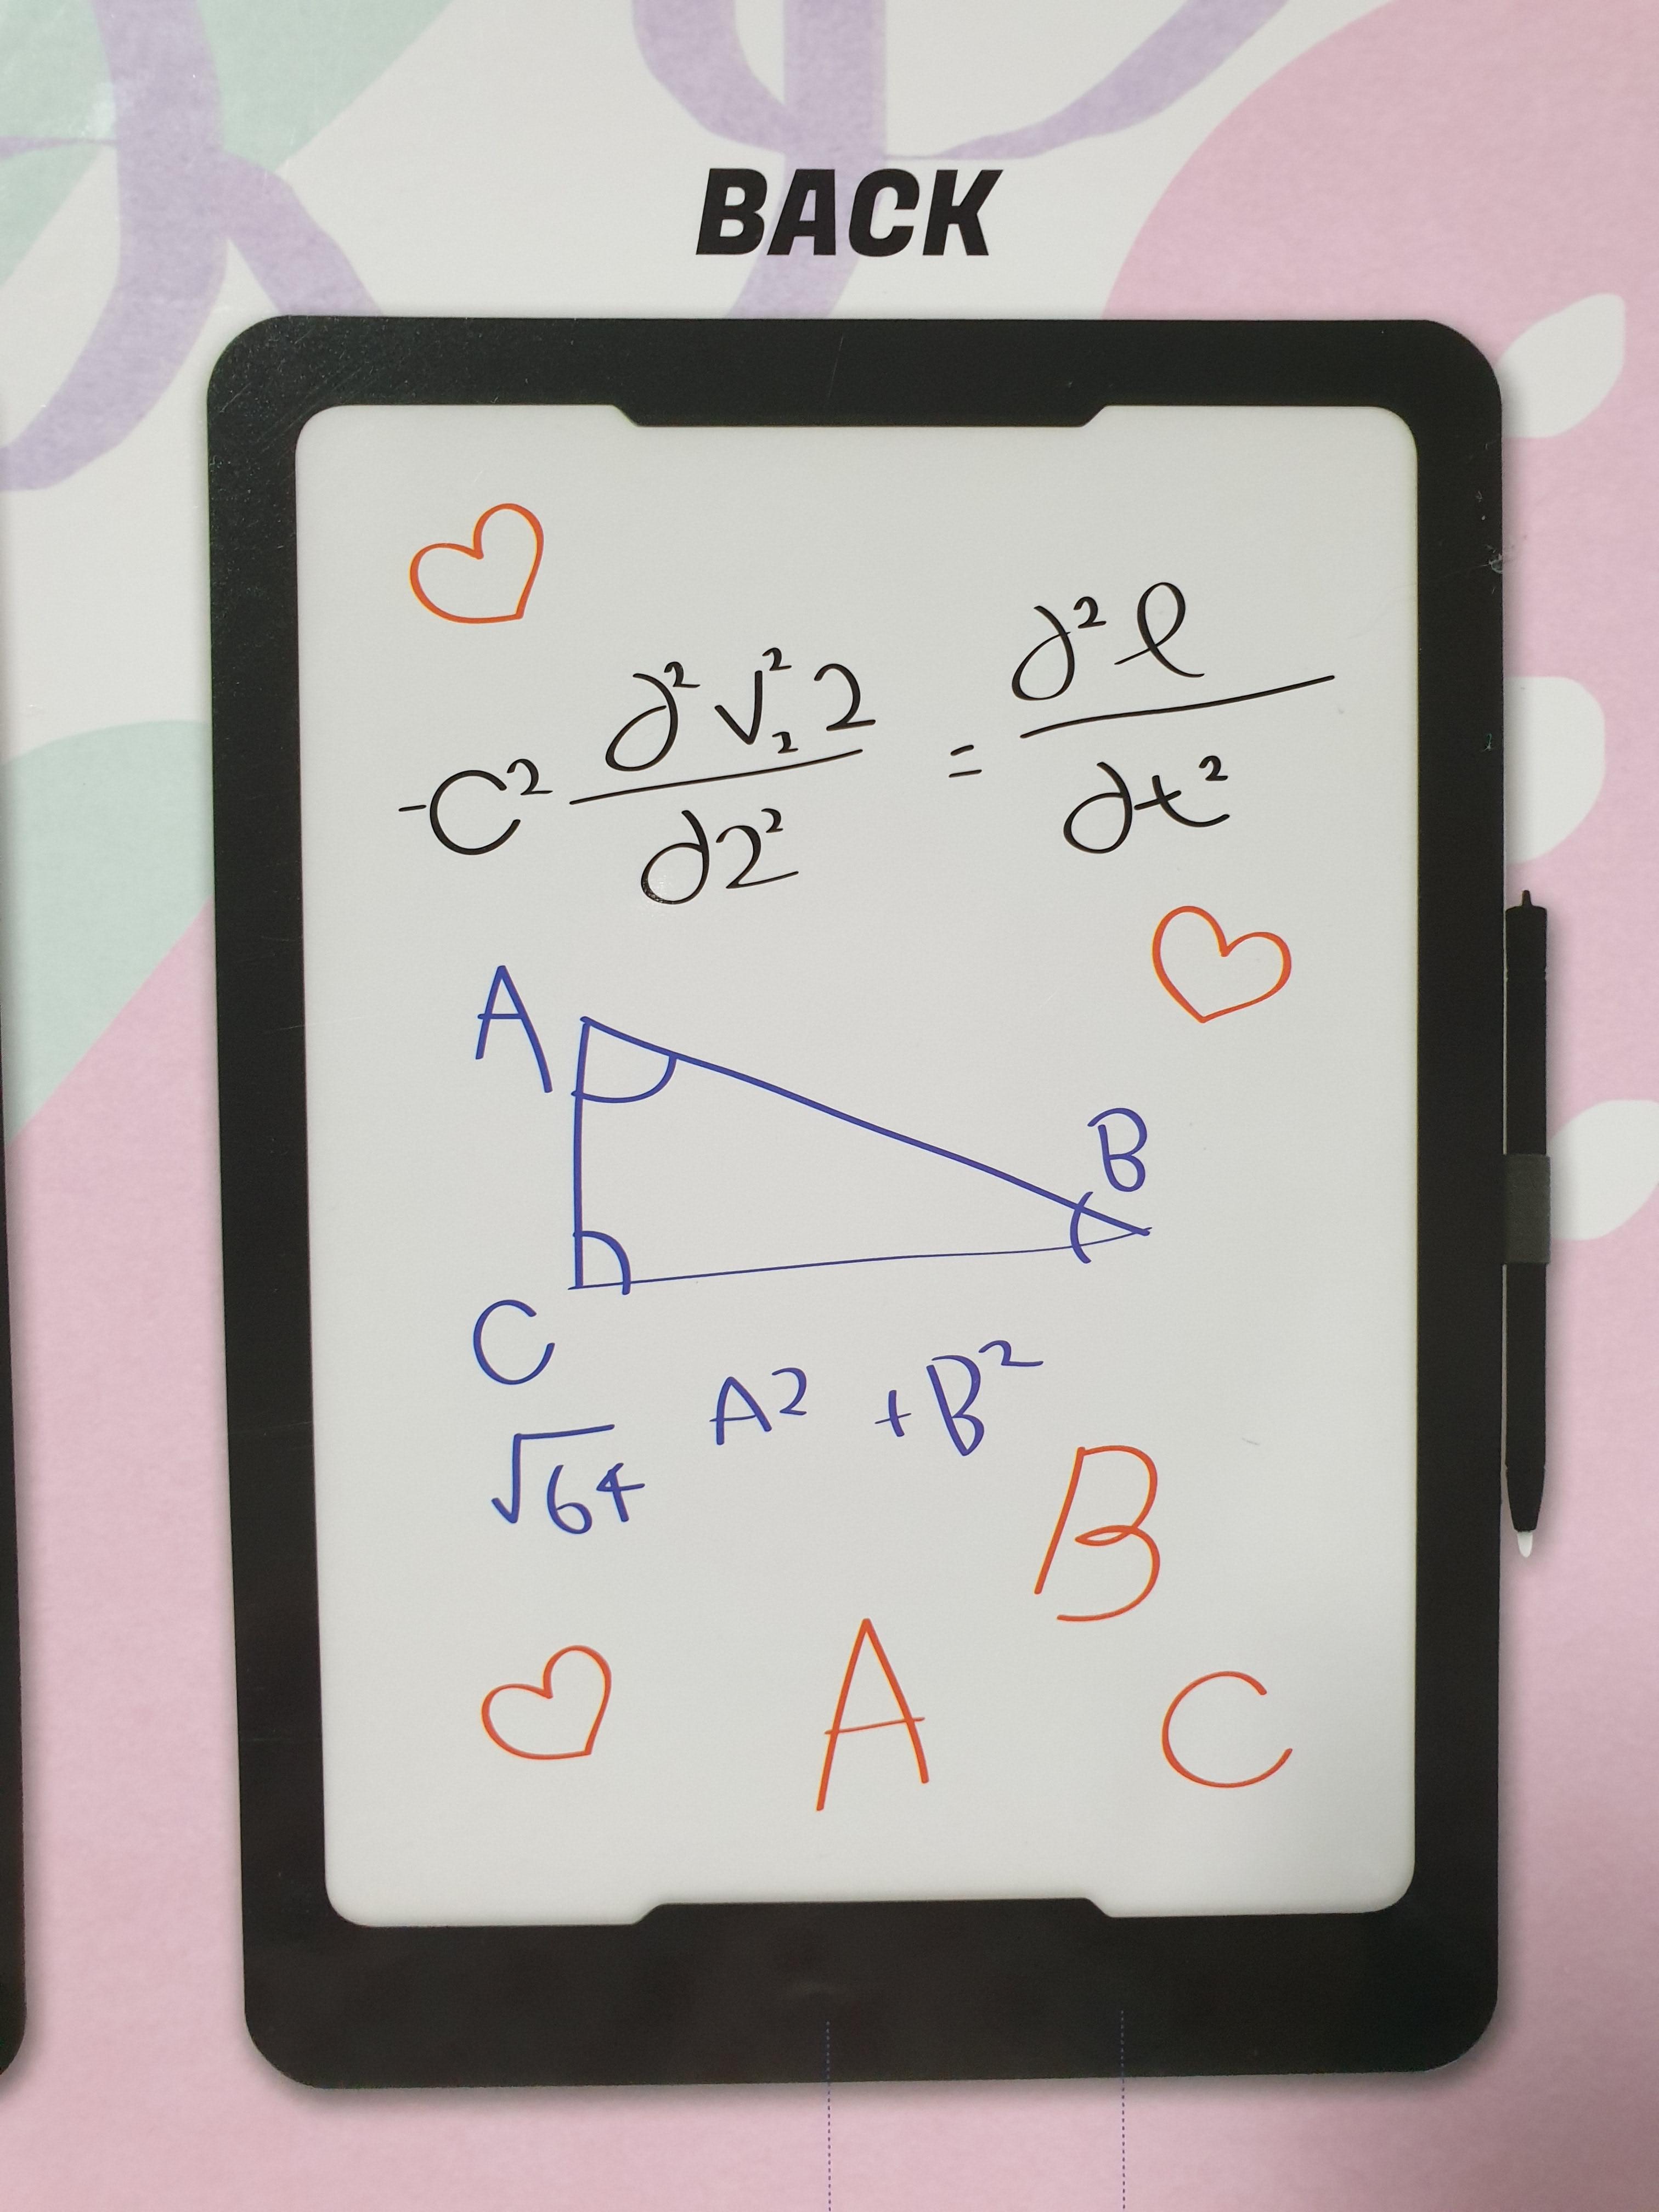 BACK
-C² ∂²V²₂2 / ∂2² = ∂²ℓ / ∂t²
A
B
C
A2 + B²
√64
B
A
C